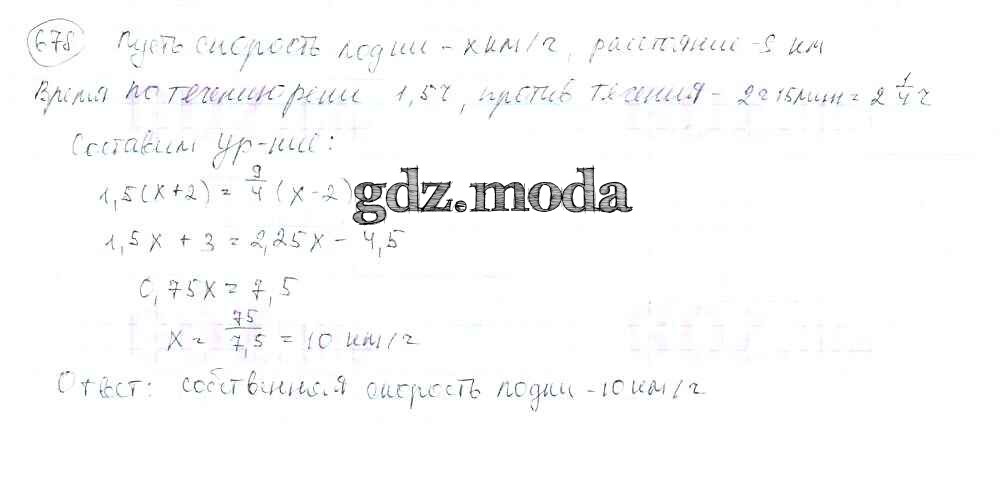 678 Пусть скорость лодки - x км/ч, расстояние - S км
Время по течению реки 1,5ч, против течения - 2ч 15мин = 2 1/4 ч
Составим ур-ние:
1,5(x+2) = 9/4 (x-2)
gdz.moda
1,5x + 3 = 2,25x - 4,5
0,75x = 7,5
x = 75/7,5 = 10 км/ч
Ответ: собственная скорость лодки - 10 км/ч